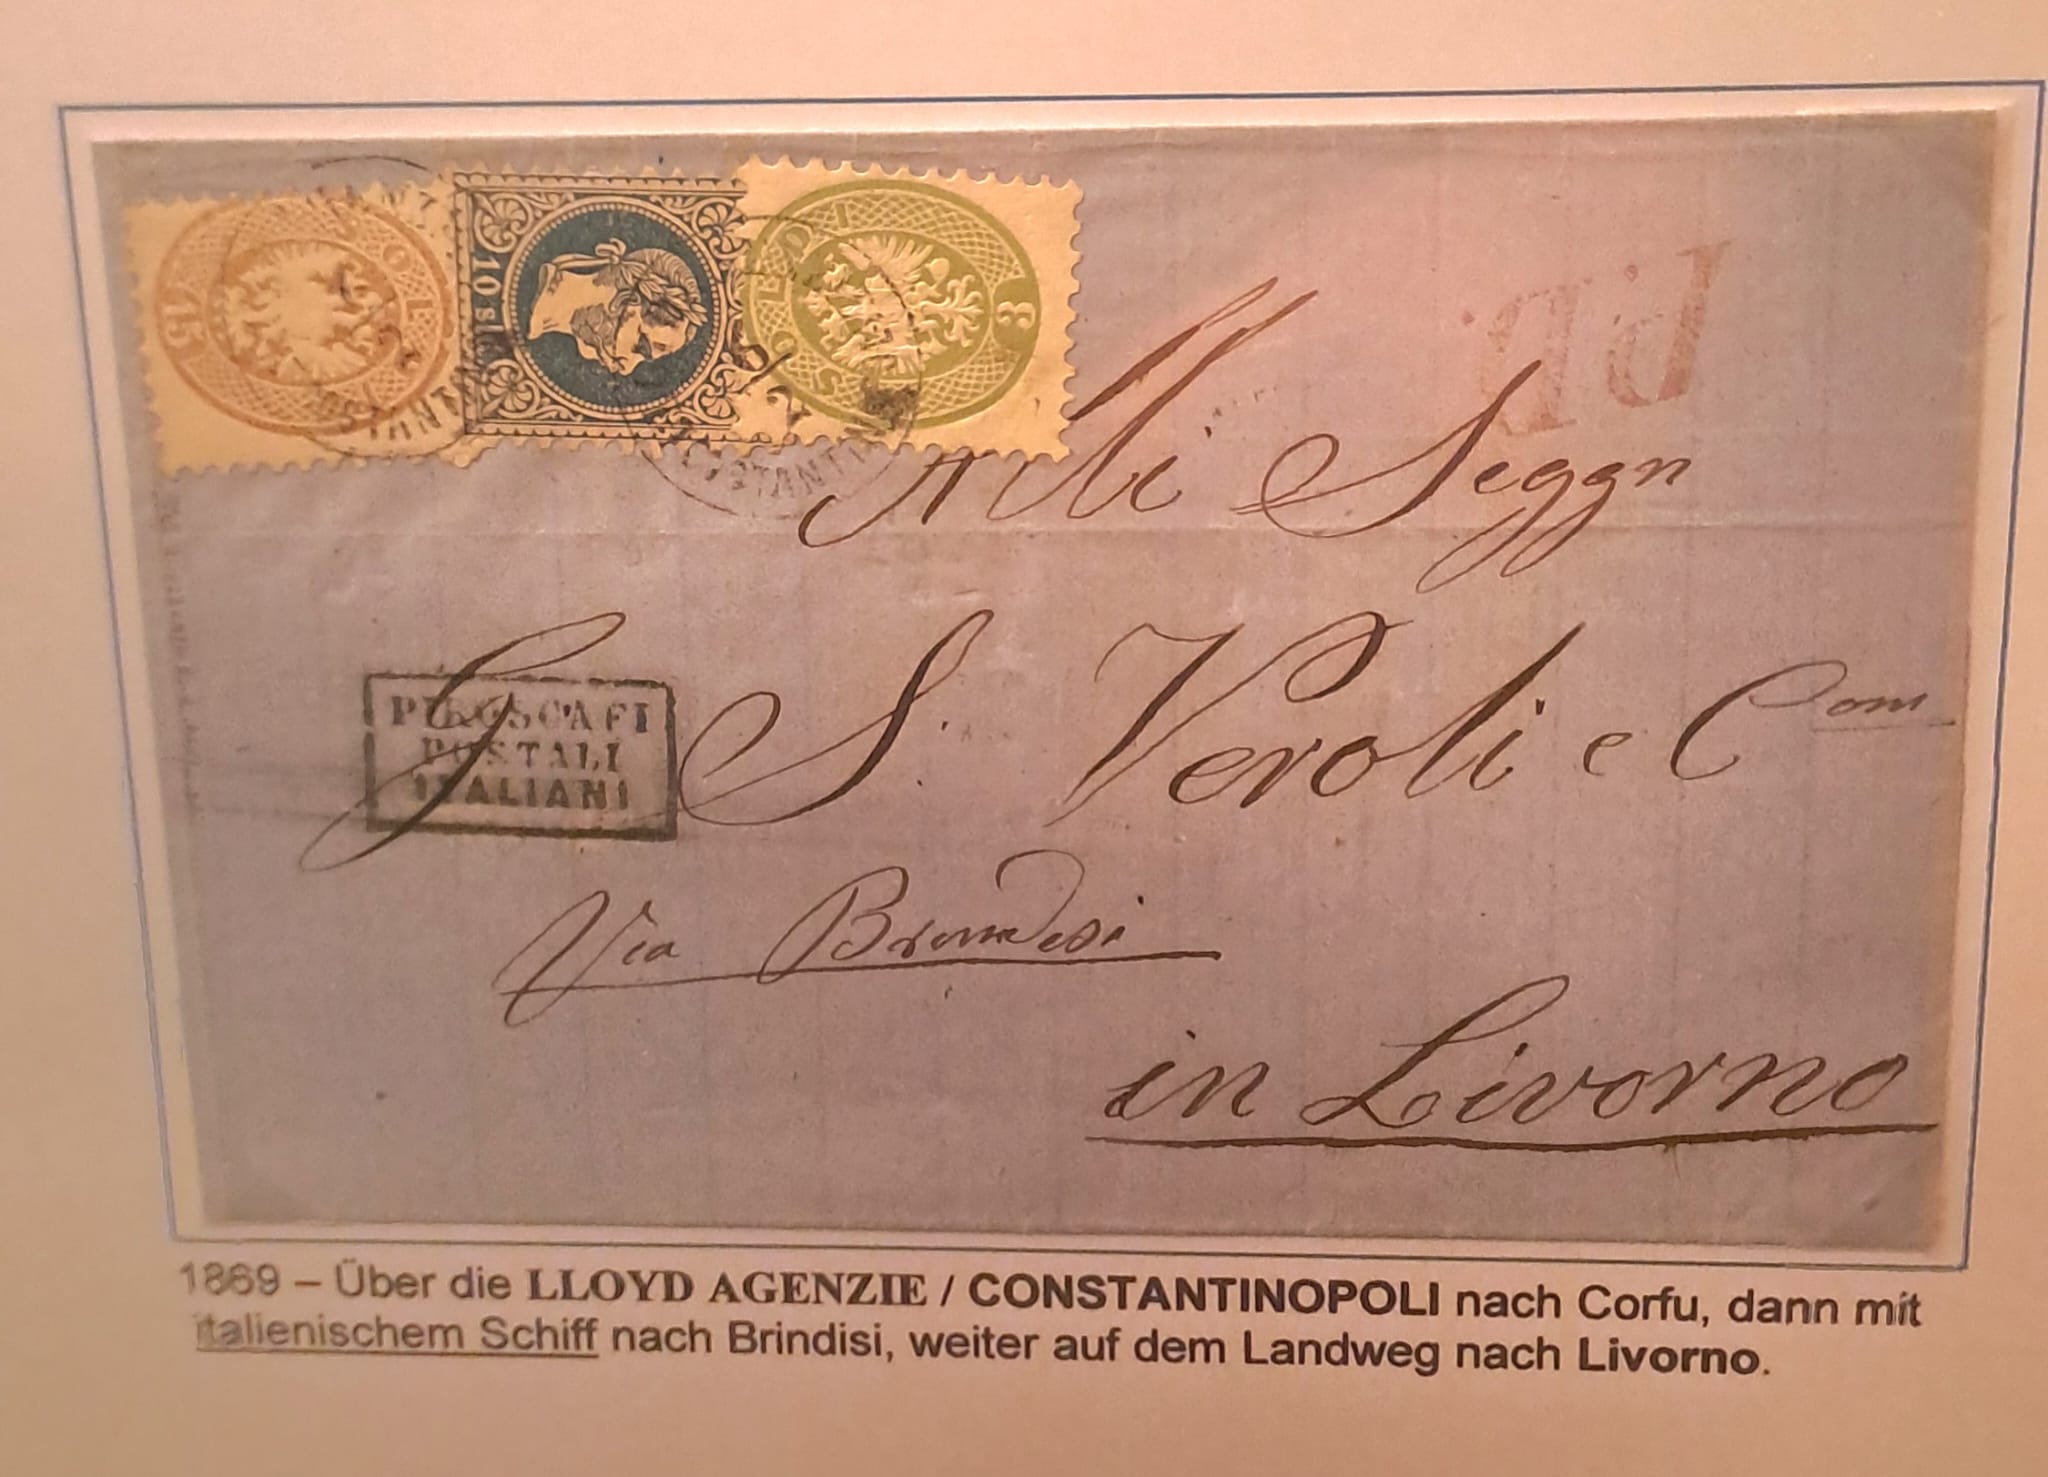 15 SOLDI
10 sld
3 SOLDI
P.D.
Alli Siggri
J. S. Veroli e Com
PIROSCAFI
POSTALI
ITALIANI
Via Brindesi
in Livorno
1869 – Über die LLOYD AGENZIE / CONSTANTINOPOLI nach Corfu, dann mit
italienischem Schiff nach Brindisi, weiter auf dem Landweg nach Livorno.